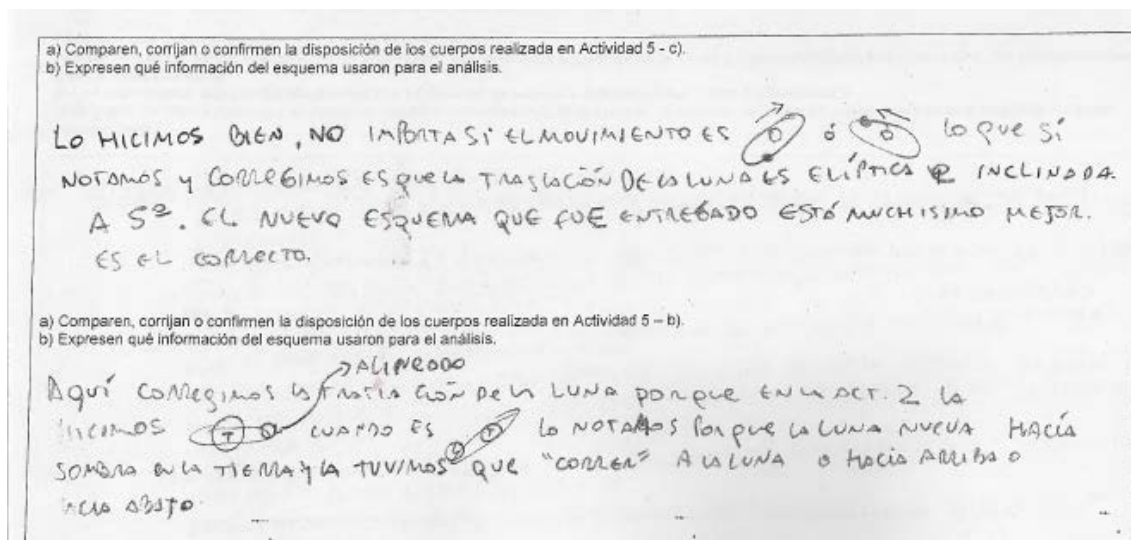 a) Comparen, corrijan o confirmen la disposición de los cuerpos realizada en Actividad 5 - c).
b) Expresen qué información del esquema usaron para el análisis.
LO HICIMOS BIEN, NO IMPORTA SI EL MOVIMIENTO ES ó lo que sí
NOTAMOS y CORREGIMOS ES QUE LA TRASLACIÓN DE LA LUNA ES ELÍPTICA e INCLINADA.
A 5º. EL NUEVO ESQUEMA QUE FUE ENTREGADO ESTÁ MUCHISIMO MEJOR.
ES EL CORRECTO.
a) Comparen, corrijan o confirmen la disposición de los cuerpos realizada en Actividad 5 – b).
b) Expresen qué información del esquema usaron para el análisis.
ALINEADO
AQUÍ CORREGIMOS LA TRASLACIÓN DE LA LUNA PORQUE EN LA ACT. 2 LA
HICIMOS T CUANDO ES T LO NOTAMOS PORQUE LA LUNA NUEVA HACÍA
SOMBRA EN LA TIERRA Y LA TUVIMOS QUE "CORRER" A LA LUNA O HACIA ARRIBA O
HACIA ABAJO.